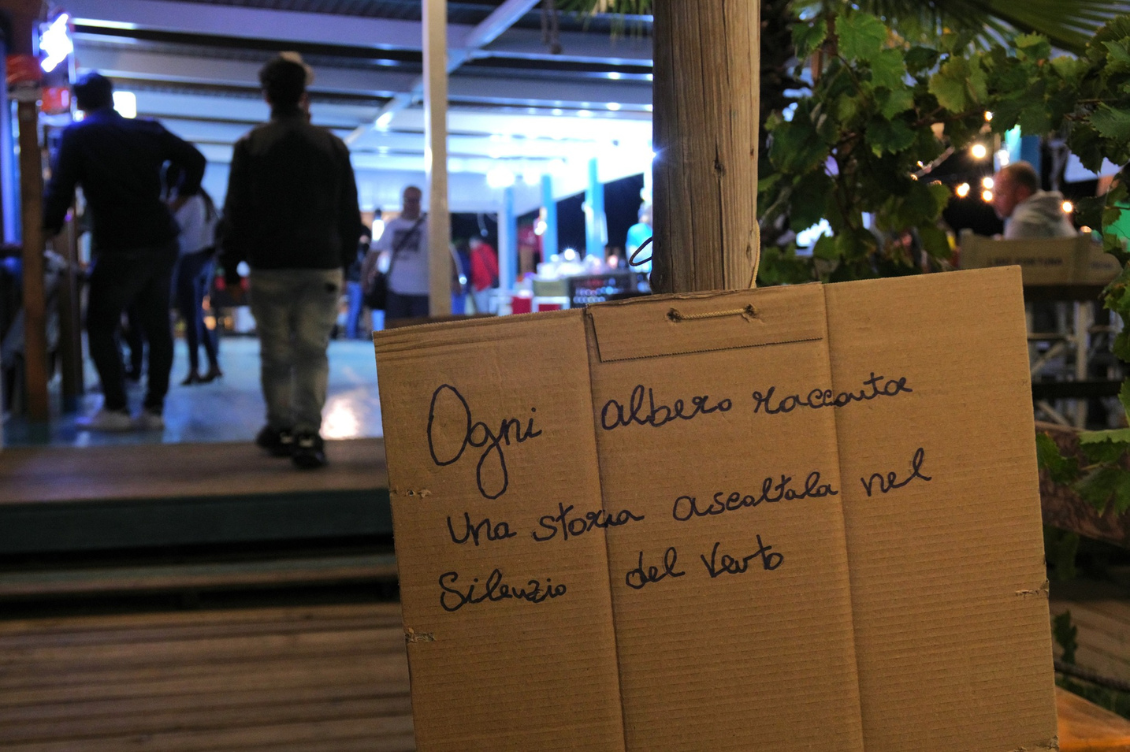 Ogni albero racconta
una storia ascoltala nel
Silenzio del vento